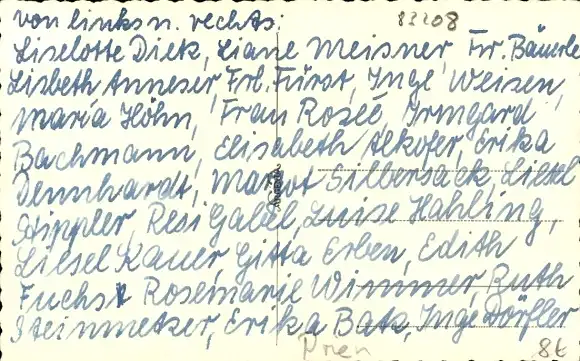 von links n. rechts: 83208
Liselotte Dietz, Liane Meisner, Fr. Bäuerle
Lisbeth Anneser, Frl. Fürst, Inge Weisen,
Maria Höhn, Frau Roseé, Irmgard
Bachmann, Elisabeth Alkofer, Erika
Dennhardt, Margot Silbersack, Liesel
Stippler, Resi Gabel, Luise Hahling,
Liesel Kauer, Gitta Erben, Edith
Fuchs, Rosemarie Wimmer, Ruth
Steinmetzer, Erika Batz, Inge Dörfler
Prien 86